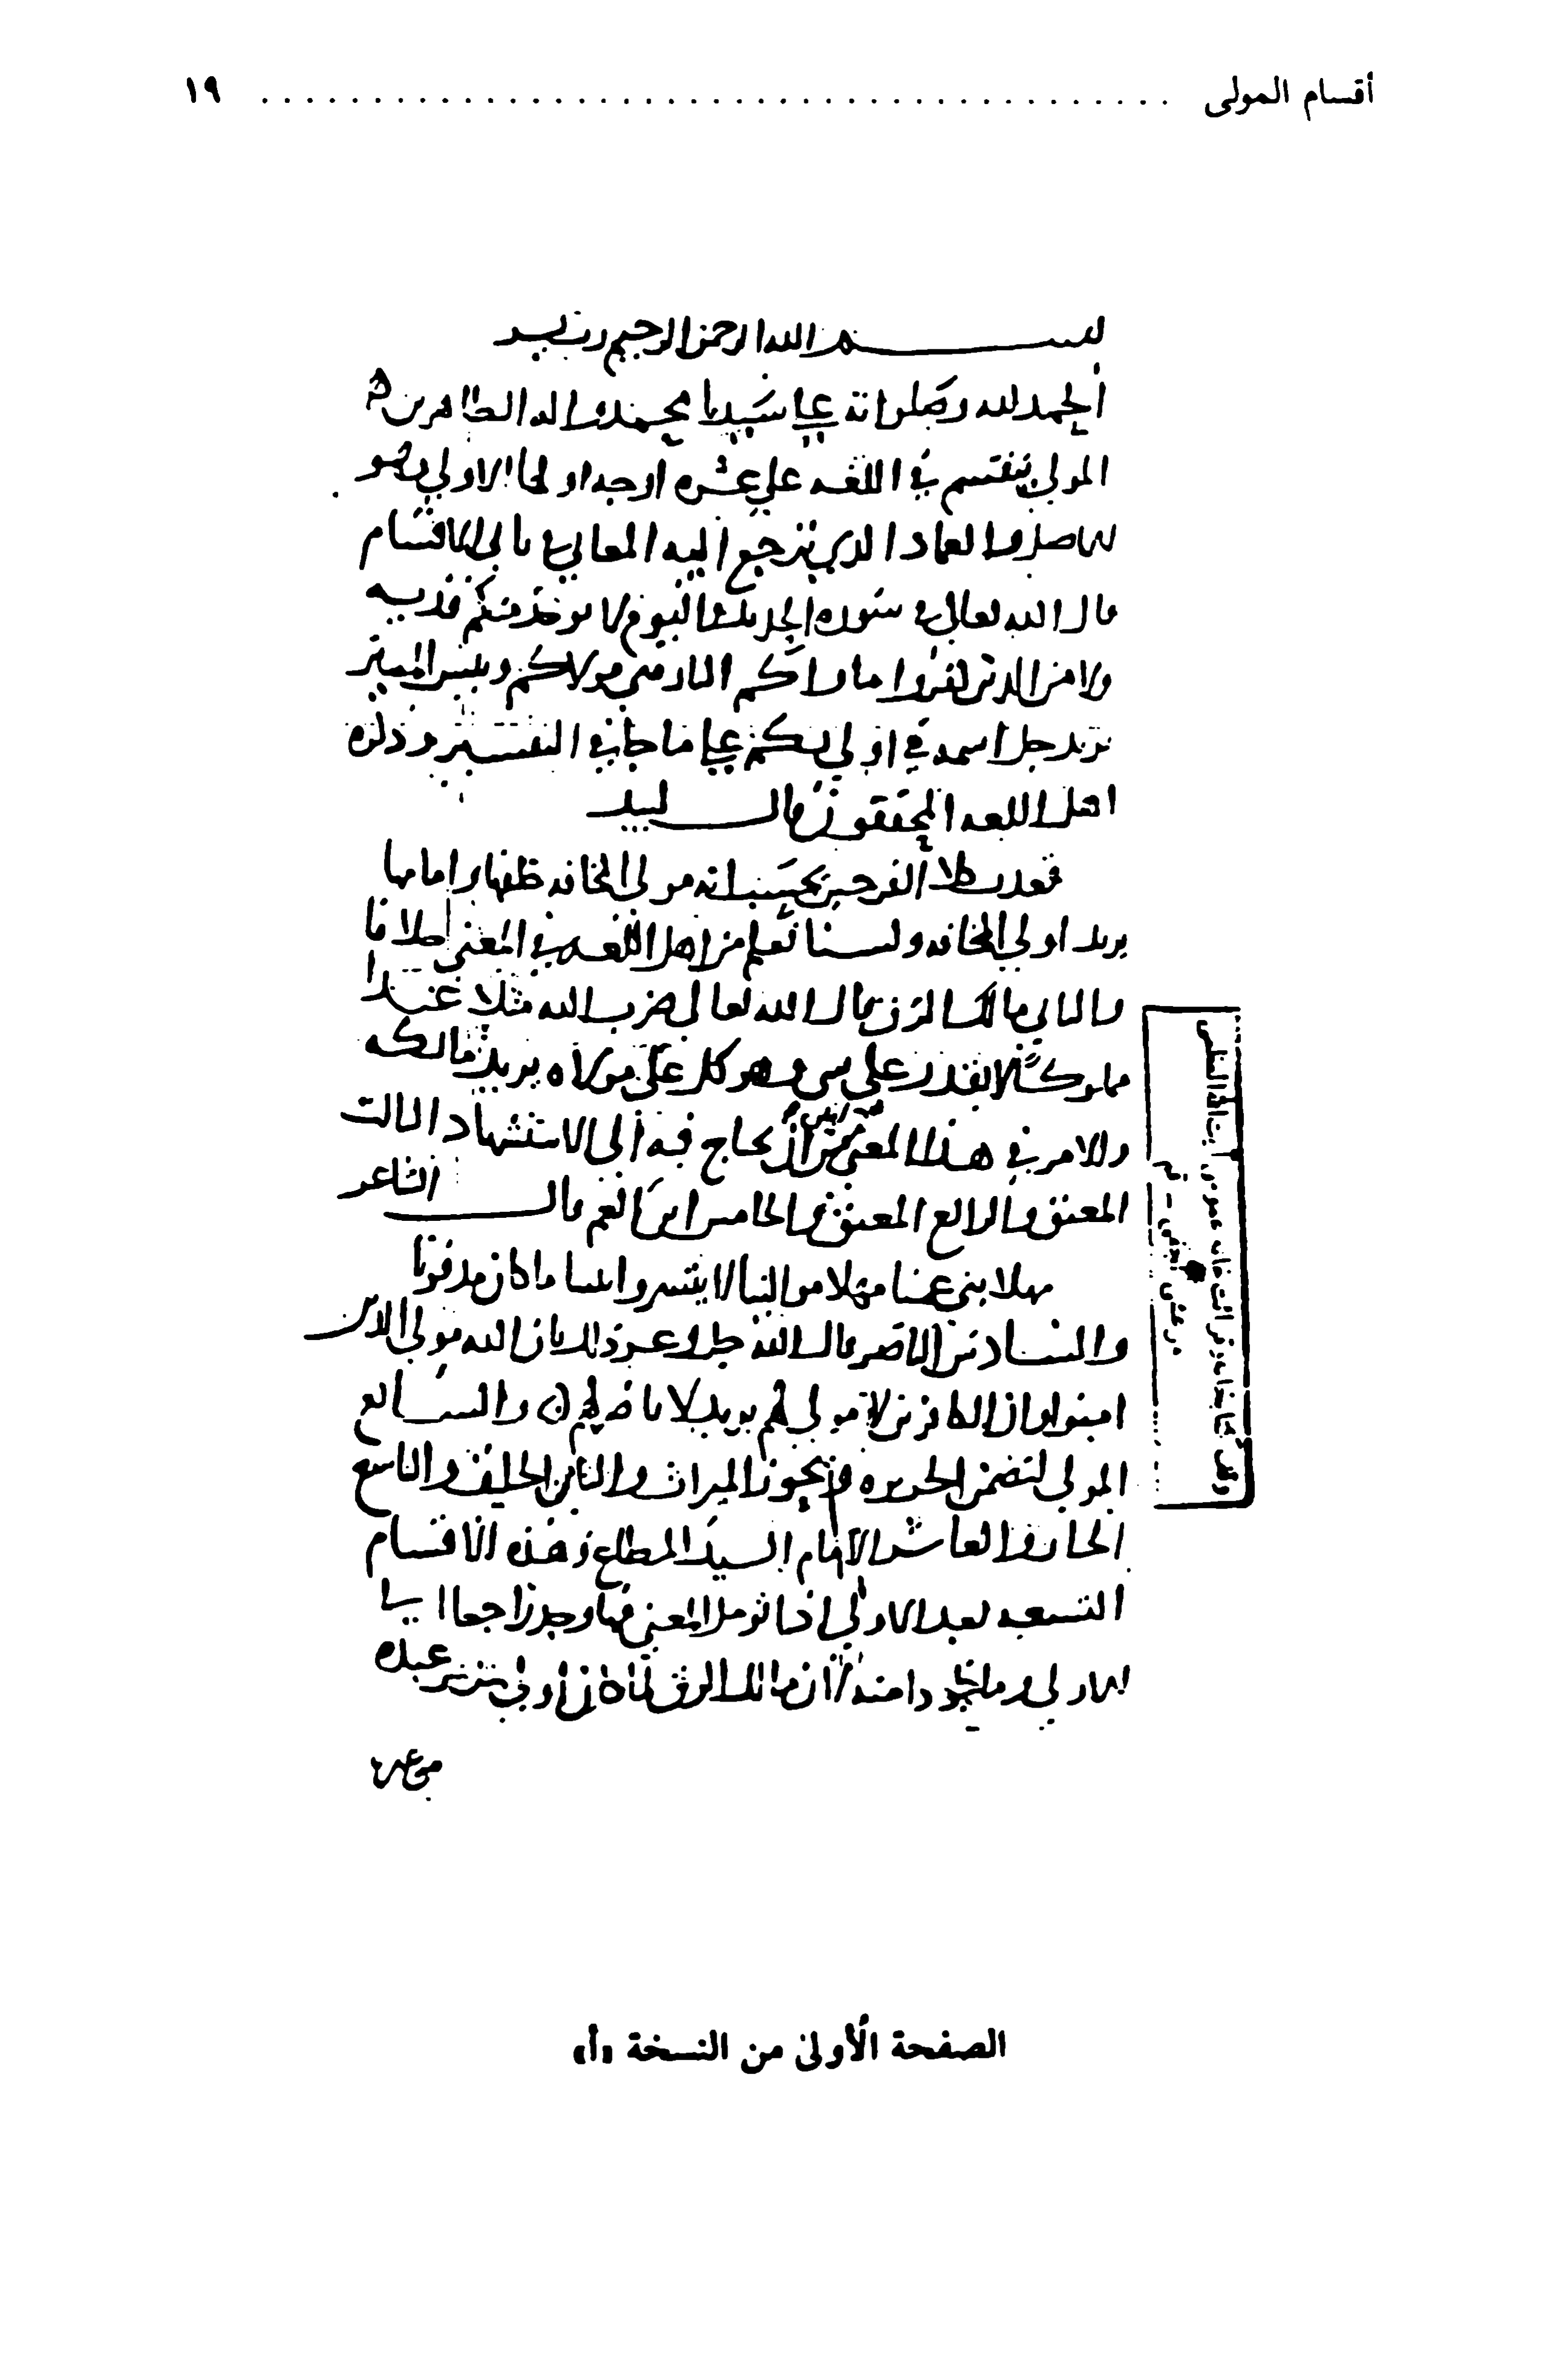 أقسام المولى ........................................ ١٩
بسم الله الرحمن الرحيم رب يسر
الحمد لله وصلواته على سيدنا محمد واله الطاهرين
المولى ينقسم في اللغه على عشره اوجه اولها الاولى وهو
الاصل والعماد الذي ترجع اليه المعاني في باقي الاقسام
قال الله تعالى في سوره الحديد فاليوم لا يوخذ منكم فديه
ولا من الذين كفروا ماواكم النار هي مولاكم وبئس المصير
يريد جل اسمه هي اولى بكم على ما جا في التفسير وذكره
اهل اللغه المحققون قال لبيد
فغدت كلا الفرجين تحسب انه مولى المخافه خلفها وامامها
يريد اولى المخافه ولسنا نعلم من اهل اللغه في المعنى خلافا
والثاني مالك الرق قال الله تعالى ضرب الله مثلا عبدا
مملوكا لا يقدر على شي وهو كل على مولاه يريد مالكه
والامر في هذا المعنى ان يحتاج فيه الى الاستشهاد الثالث
المعتق والرابع المعتق والخامس ابن العم قال الشاعر
مهلا بني عمنا مهلا موالينا لا ينشروا بيننا ما كان مدفونا
والسادس الناصر قال الله جل وعز ذلك بان الله مولى الذين
امنوا وان الكافرين لا مولى لهم يريد لا ناصر لهم والسابع
المولى لتضمن الجريره ويحوز الميراث والثامن الحليف والتاسع
الجار والعاشر الامام السيد المطاع وهذه الاقسام
التسعه بعد الاولى اذا تومل المعنى فيها وجد راجعا الى
الاولى وماخوذا منه لان مالك الرق لما كان اولى بتدبير عبده
من غيره
الصفحة الأولىٰ من النسخة «أ»